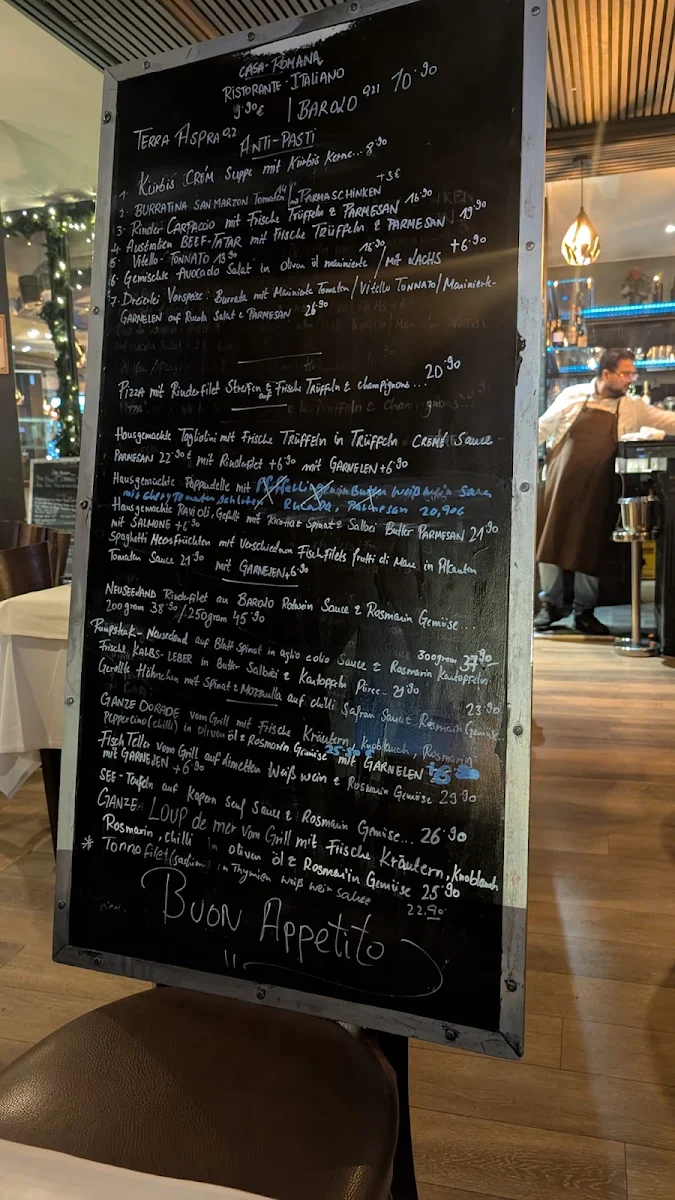 CASA-ROMANA
RISTORANTE-ITALIANO
9.90€ | BAROLO 0,1 10.90
TERRA ASPRA 0,2
ANTI-PASTI
1. Kürbis CREM Suppe mit Kürbis Kerne... 8.90
2. BURRATINA SAN MARZON Tomaten PARMASCHINKEN +3€
3. Rinder CARPACCIO mit Frische Trüffeln & PARMESAN 16.90
4. Australien BEEF-TATAR mit Frische TRÜFFELN & PARMESAN 19.90
5. Vitello-TONNATO 13.90
6. Gemischte AVOCADO Salat in oliven öl mariniert 15.90 / MIT LACHS +6.90
7. Dreierlei Vorspeise: Burrata mit Marinierte Tomaten / Vitello TONNATO / Marinierte-
GARNELEN auf Rucola Salat & PARMESAN 26.90
PIZZA mit Rinderfilet Streifen & Frische Trüffeln & champignons... 20.90
Hausgemachte Tagliolini mit Frische TRÜFFELN in TRÜFFELN CREME Sauce
PARMESAN 22.90€ mit Rinderfilet +6.90 mit GARNELEN +6.90
Hausgemachte Pappardelle mit Pfifferlingen in Butter Weißwein Sauce
mit cherry Tomaten, Schlotte, Rucola, Parmesan 20,90€
Hausgemachte Ravioli, Gefüllt mit Ricotta & Spinat & Salbei Butter PARMESAN 21.90
mit SALMONE +6.90
Spaghetti Meeresfrüchten mit Verschieden Fischfilets frutti di Mare in Pikanten
Tomaten Sauce 21.90 mit GARNELEN 6.90
NEUSEELAND Rinderfilet an BAROLO Rotwein Sauce & Rosmarin Gemüse...
200gram 38.90 / 250gram 45.90
300gram 37.90
Rumpsteak-Neuseeland auf Blatt Spinat in aglio e olio Sauce & Rosmarin Kartoffeln
Frische KALBS-LEBER in Butter Salbei & Kartoffeln Püree.. 29.90
Gerollte Hähnchen mit Spinat & Mozzarella auf chilli Safran Sauce & Rosmarin Gemüse 23.90
GANZE DORADE vom Grill mit Frische Kräutern, Knoblauch, Rosmarin
Peppercino (chilli) in oliven öl & Rosmarin Gemüse 25.90€ mit GARNELEN +6.90
Fisch Teller vom Grill auf dimetten Weiß wein & Rosmarin Gemüse 29.90
mit GARNELEN +6.90
SEE-Teufeln auf Kapern Senf Sauce & Rosmarin Gemüse... 26.90
GANZE LOUP de mer vom Grill mit Frische Kräutern, Knoblauch
Rosmarin, chilli in oliven öl & Rosmarin Gemüse 25.90
* Tonno filet (sashimi) in Thymien weiß wein sauce 22.90
BUON APPETITO